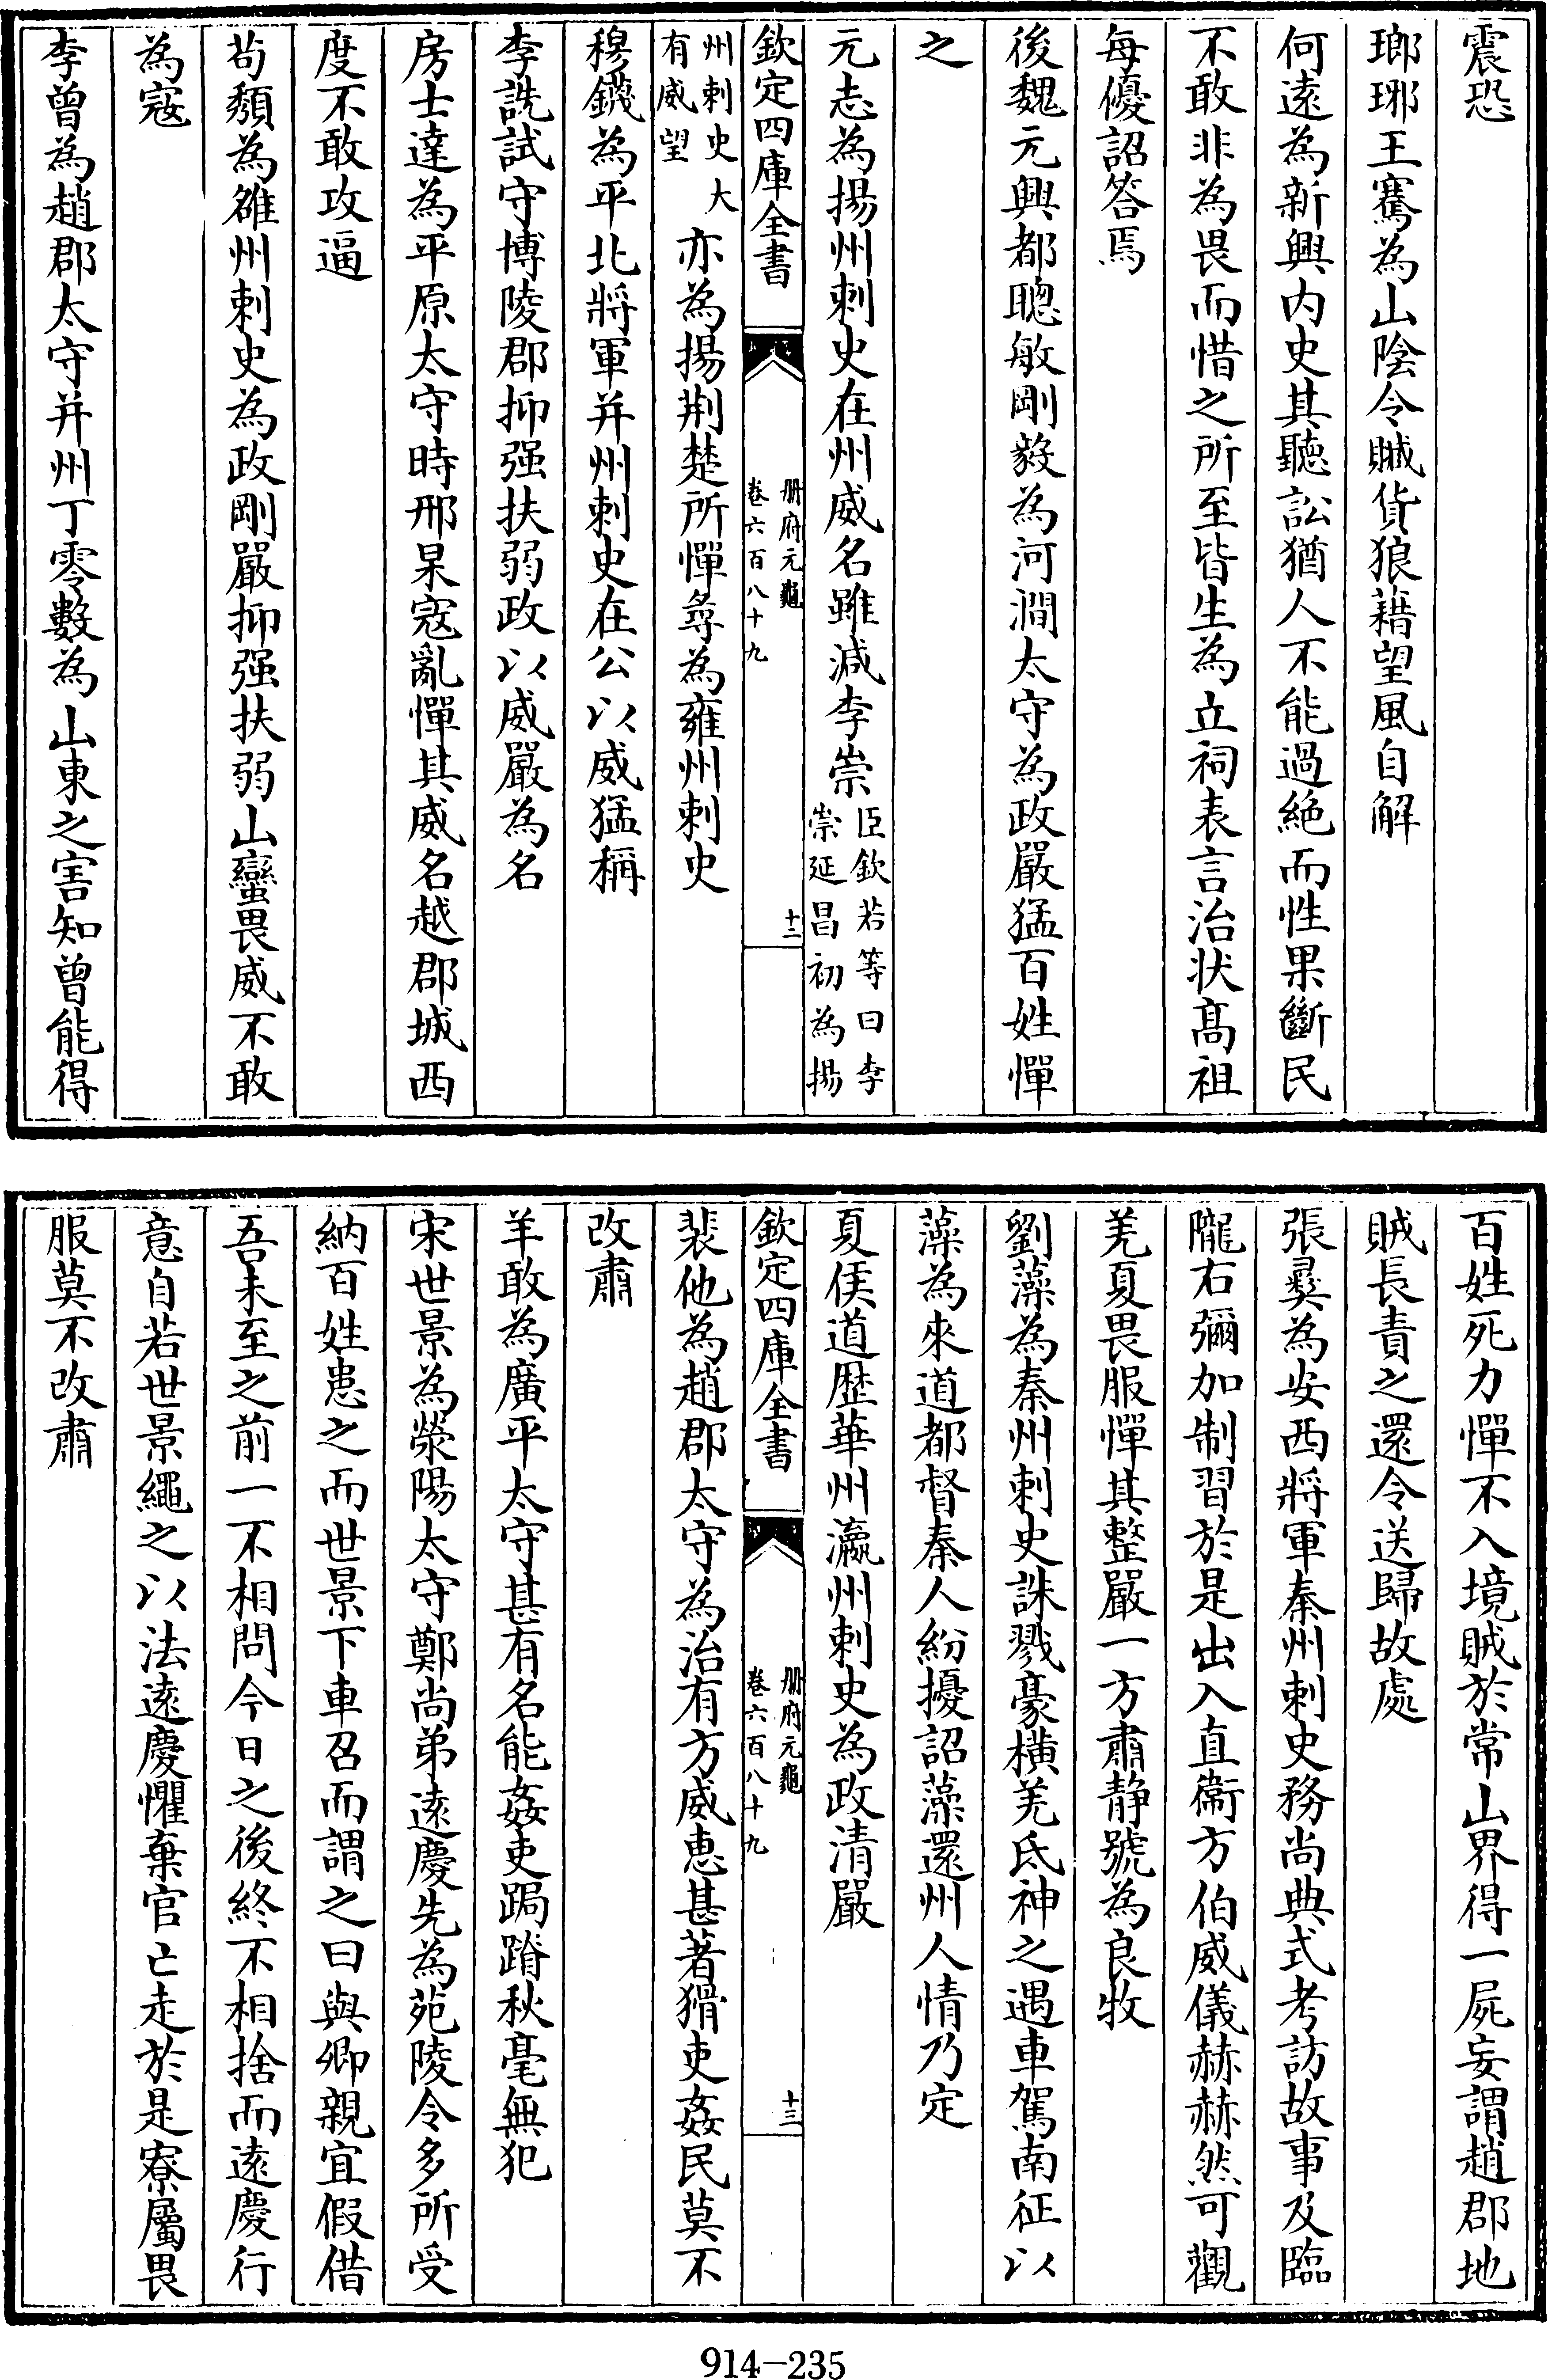 震恐
瑯琊王騫為山陰令贓貨狼藉望風自解
何遠為新興内史其聽訟猶人不能過絶而性果斷民
不敢非為畏而惜之所至皆生為立祠表言治状髙祖
每優詔答焉
後魏元興都聰敏剛毅為河澗太守為政嚴猛百姓憚
之
元志為揚州刺史在州威名雖減李崇臣欽若等曰李
崇延昌初為揚
欽定四庫全書
册府元龜
卷六百八十九
十二
州刺史大
有威望
亦為揚荆楚所憚尋為雍州刺史
穆鐖為平北將軍并州刺史在公以威猛稱
李詵試守博陵郡抑强扶弱政以威嚴為名
房士達為平原太守時邢杲寇亂憚其威名越郡城西
度不敢攻逼
茍頽為雒州刺史為政剛嚴抑强扶弱山蠻畏威不敢
為寇
李曾為趙郡太守并州丁零數為山東之害知曾能得
百姓死力憚不入境賊於常山界得一屍妄謂趙郡地
賊長責之還令送歸故處
張彛為安西將軍秦州刺史務尚典式考訪故事及臨
隴右彌加制習於是出入直衞方伯威儀赫赫然可觀
羌夏畏服憚其整嚴一方肅静號為良牧
劉藻為秦州刺史誅戮豪横羌氐神之遇車駕南征以
藻為來道都督秦人紛擾詔藻還州人情乃定
夏侯道歷華州瀛州刺史為政清嚴
欽定四庫全書
册府元龜
卷六百八十九
十三
裴他為趙郡太守為治有方威恵甚著猾吏姦民莫不
改肅
羊敢為廣平太守甚有名能姦吏跼蹐秋毫無犯
宋世景為滎陽太守鄭尚弟遠慶先為苑陵令多所受
納百姓患之而世景下車召而謂之曰與卿親宜假借
吾未至之前一不相問今日之後終不相捨而遠慶行
意自若世景繩之以法遠慶懼棄官亡走於是寮屬畏
服莫不改肅
914-235